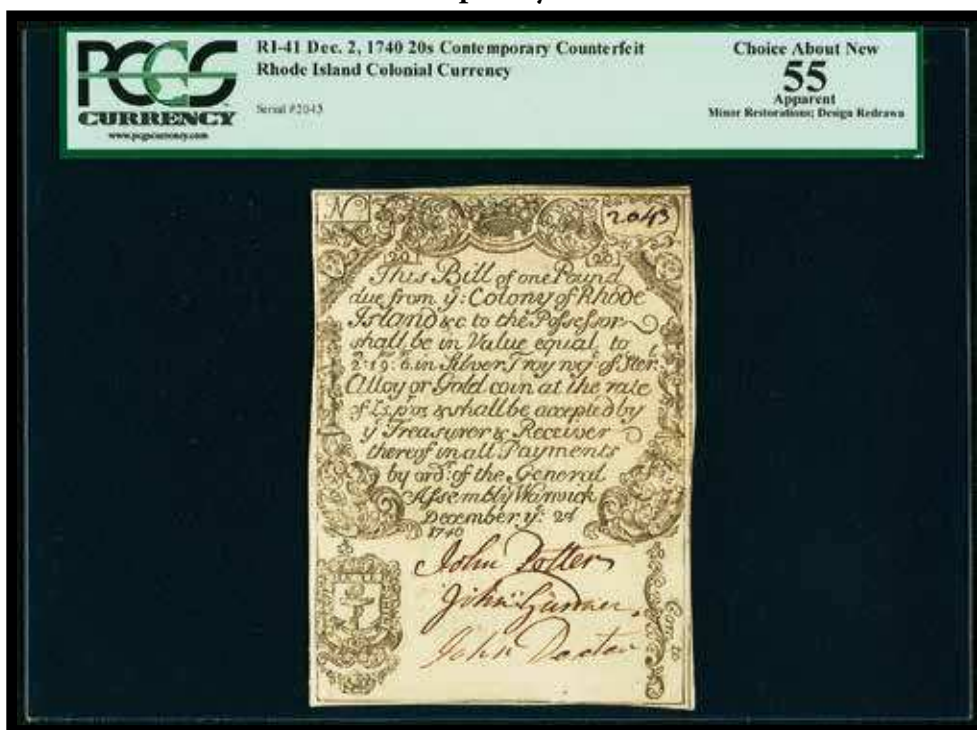 RI-41 Dec. 2, 1740 20s Contemporary Counterfeit
Rhode Island Colonial Currency
Serial #2043
PCGS
CURRENCY
www.pcgscurrency.com
Choice About New
55
Apparent
Minor Restorations; Design Redrawn
N 2043
20 20
This Bill of one Pound
due from yͤ: Colony of Rhode
Island &c to the Possessor
shall be in Value equal to
2:19:6 in Silver Troy wgᵗ of Ster:
Alloy or Gold coin at the rate
of & shall be accepted by
y Treasurer & Receiver
thereof in all Payments
by ordʳ: of the General
Assembly Warwick
December yͤ: 2d
1740
John Potter
John Gardner.
John